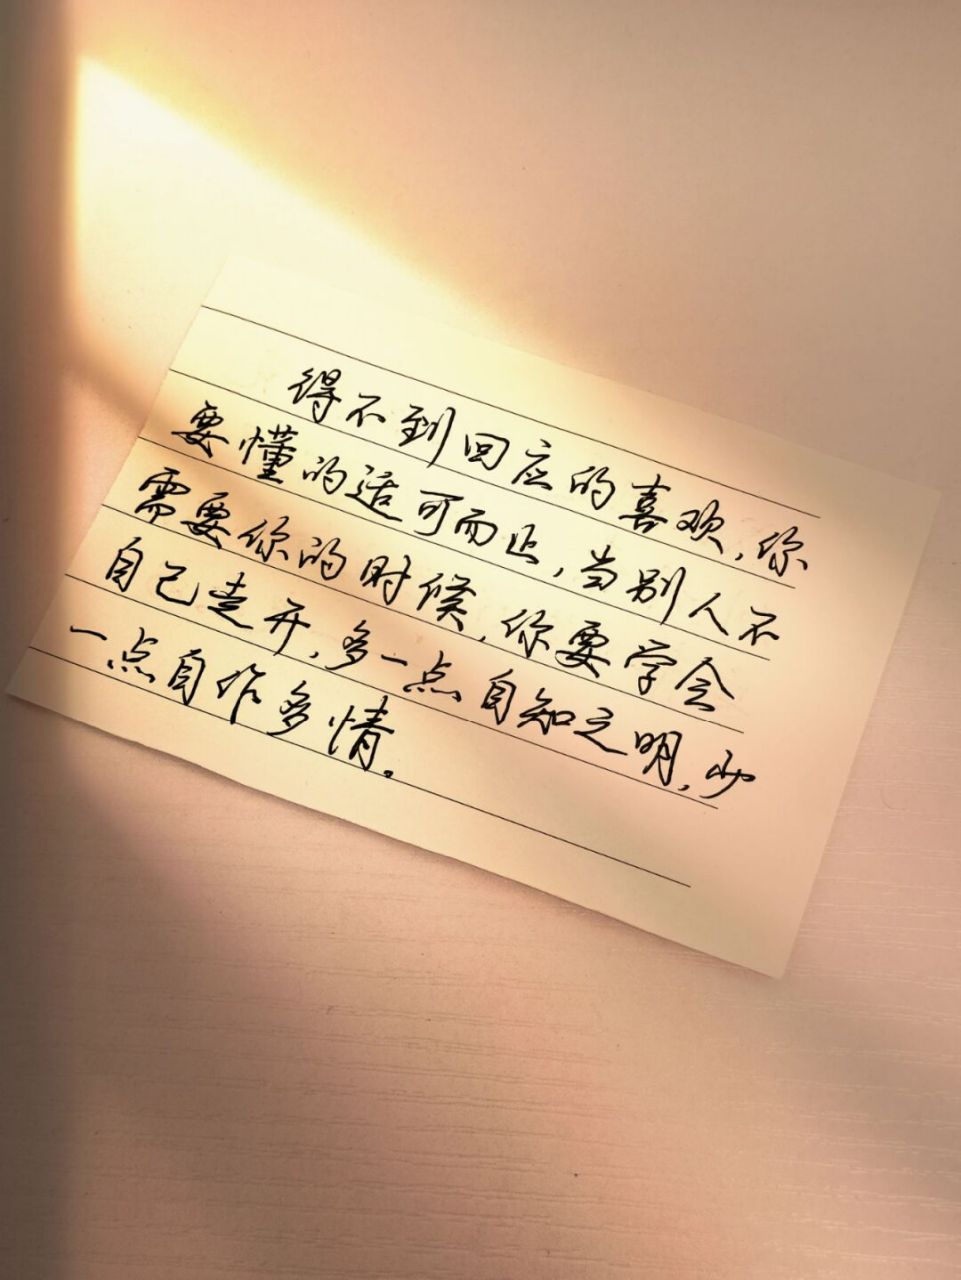 得不到回应的喜欢，你
要懂的适可而止，当别人不
需要你的时候，你要学会
自己走开，多一点自知之明，少
一点自作多情。